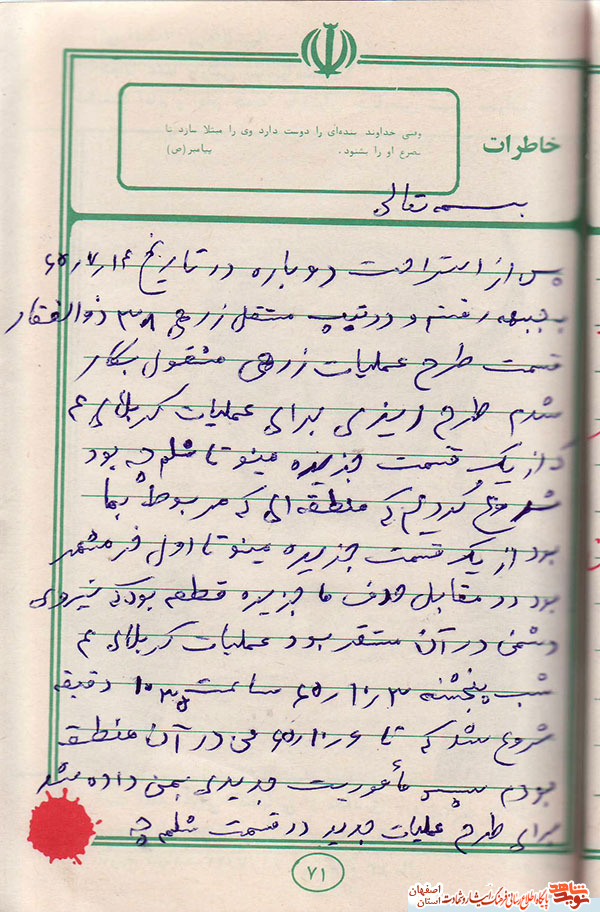 خاطرات
وقتی خداوند بنده‌ای را دوست دارد وی را مبتلا سازد تا
تضرع او را بشنود. پیامبر(ص)
بسمه تعالی
پس از استراحت دوباره در تاریخ ۶۵/۷/۱۴
بجبهه رفتم و در تیپ مستقل زرهی ۳۸ ذوالفقار
قسمت طرح عملیات زرهی مشغول بکار
شدم طرح ریزی برای عملیات کربلای ۴
که از یک قسمت جزیره مینو تا شلمچه بود
شروع کردیم که منطقه ای که مربوط بما
بود از یک قسمت جزیره مینو تا اول خرمشهر
بود در مقابل هدف ما جزیره قطعه بود که نیروی
دشمن در آن مستقر بود عملیات کربلای ۴
شب پنجشنبه ۶۵/۱۰/۳ ساعت ۱۰۳۵ دقیقه
شروع شد که تا ۶۵/۱۰/۶ من در آن منطقه
بودم سپس مأموریت جدیدی بمن داده شد
برای طرح عملیات جدید در قسمت شلمچه
۷۱
نوید شاهد پایگاه اطلاع رسانی فرهنگ ایثار و شهادت اصفهان استان